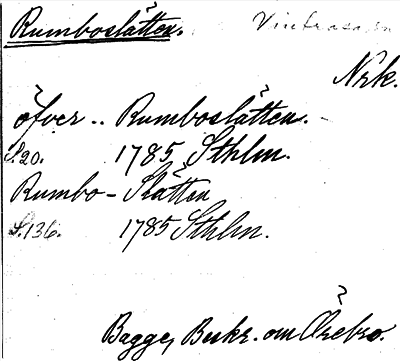 Rumboslätten.
Nrk.
öfver .. Rumboslätten. -
S.20. 1785 Sthlm.
Rumbo - Slätten
S.136. 1785 Sthlm.
Bagge, Beskr. om Örebro.